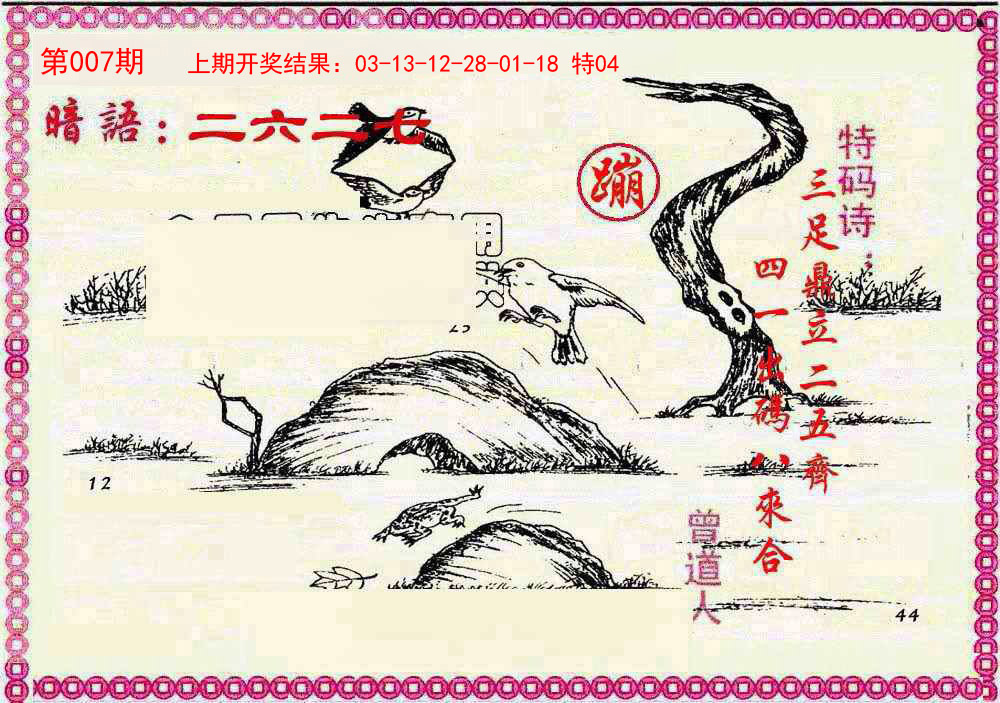 第007期 上期开奖结果：03-13-12-28-01-18 特04
暗語：二六二七
蹦
特码诗：
三足鼎立二五齊
四一出碼八來合
曾道人
12
44